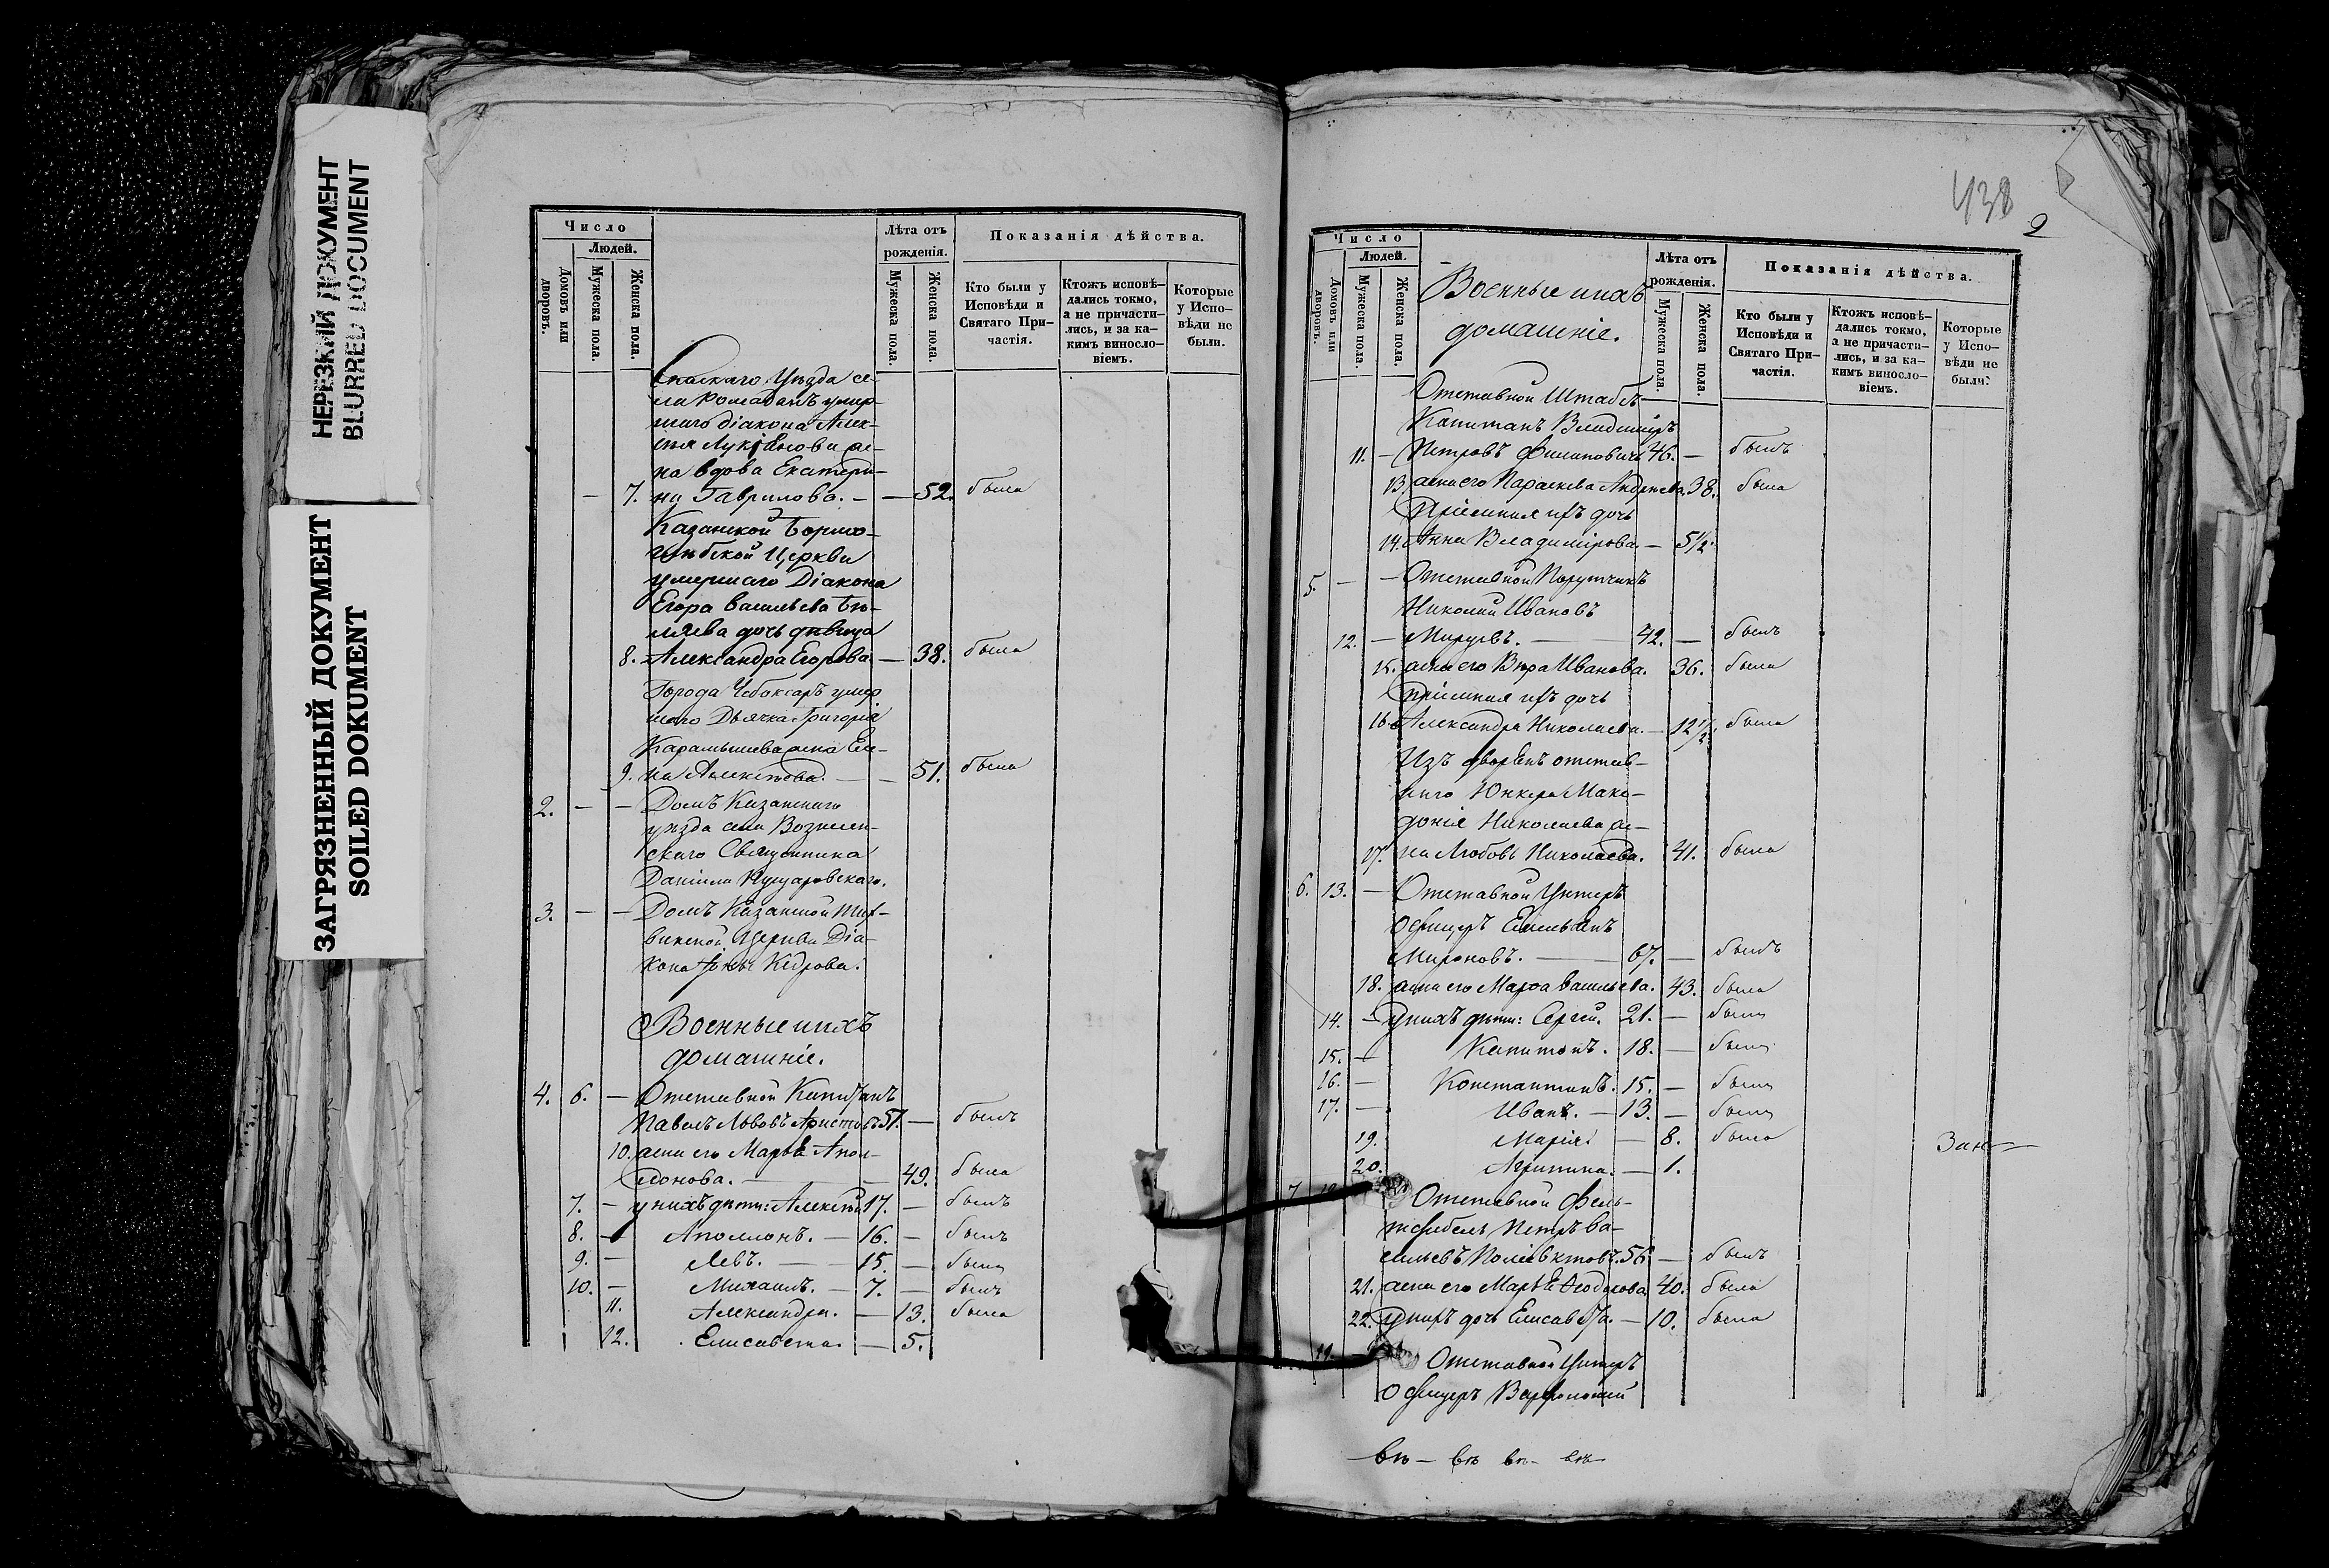 НЕРЕЗКИЙ ДОКУМЕНТ
BLURRED DOCUMENT
ЗАГРЯЗНЕННЫЙ ДОКУМЕНТ
SOILED DOKUMENT
Число
Людей.
Домовъ или дворовъ.
Мужеска пола.
Женска пола.
Лѣта отъ рожденія.
Мужеска пола.
Женска пола.
Показанія дѣйства.
Кто были у Исповѣди и Святаго Причастія.
Ктожъ исповѣдались токмо, а не причастились, и за какимъ винословіемъ.
Которые у Исповѣди не были.
Спаскаго Уѣзда се-
ла Ромадамъ умер-
шаго діакона Алек-
сѣя Лукіянова же-
на вдова Екатери-
7. на Гаврилова. — 52. была
Казанской
Церкви
умершаго Діакона
Егора Васильева Бѣ-
ляева дочь дѣвица
8. Александра Егорова — 38. была
Города Чебоксаръ умер
шаго Дьячка Григорія
Карамышева жена Еле-
9. на Алексѣева. — 51. была
2. — — Домъ Казанскаго
уѣзда села Вознесен-
скаго Священника
Даніила
3. — — Домъ Казанской Тих-
винской Церкви Діа-
кона Кедрова.
Военные и ихъ
домашніе.
4. 6. — Отставной Капитанъ
Павелъ Львовъ Аристовъ 51. — былъ
10. жена его Марья Апол-
лонова. — 49. была
7. — у нихъ дѣти: Алексѣй 17. — былъ
8. — Аполлонъ. — 16. — былъ
9. — Левъ. — 15. — былъ
10. — Михаилъ. — 7. — былъ
11. Александра. — 13. была
12. Елисавета. — 5.
438
2
Число
Людей.
Домовъ или дворовъ.
Мужеска пола.
Женска пола.
Военные и ихъ
домашніе.
Лѣта отъ рожденія.
Мужеска пола.
Женска пола.
Показанія дѣйства.
Кто были у Исповѣди и Святаго Причастія.
Ктожъ исповѣдались токмо, а не причастились, и за какимъ винословіемъ.
Которые у Исповѣди не были.
Отставной Штабсъ-
Капитанъ Владиміръ
11. — Петровъ Филиповичъ 46. — былъ
13. жена его Параскева Андреева 38. была
Пріемная ихъ дочь
14. Анна Владимірова — 5½.
5. — — Отставной Порутчикъ
Николай Ивановъ
12. — 42. — былъ
15. жена его Вѣра Иванова. 36. была
Пріемная ихъ дочь
16. Александра Николаева. — 12½. была
Изъ дворянъ отстав-
наго Юнкера Маке-
донія Николаева же-
17. на Любовь Николаева. 41. была
6. 13. — Отставной Унтеръ
Офицеръ Емельянъ
Мироновъ. — 67. — былъ
18. жена его Марѳа Васильева. 43. была
14. — у нихъ дѣти: Сергей. 21. — былъ
15. — Капитонъ. 18. — былъ
16. — Константинъ. 15. — былъ
17. — Иванъ. — 13. — былъ
19. Марія — 8. была
20. Агрипина. — 1.
7 Отставной Фель-
тфебель Петръ Ва-
сильевъ Поліевктовъ. 56. — былъ
21. жена его Марья Ѳеодорова 40. была
22. У нихъ дочь Елисавета. — 10. была
19. Отставной Унтеръ
Офицеръ Варфоломей